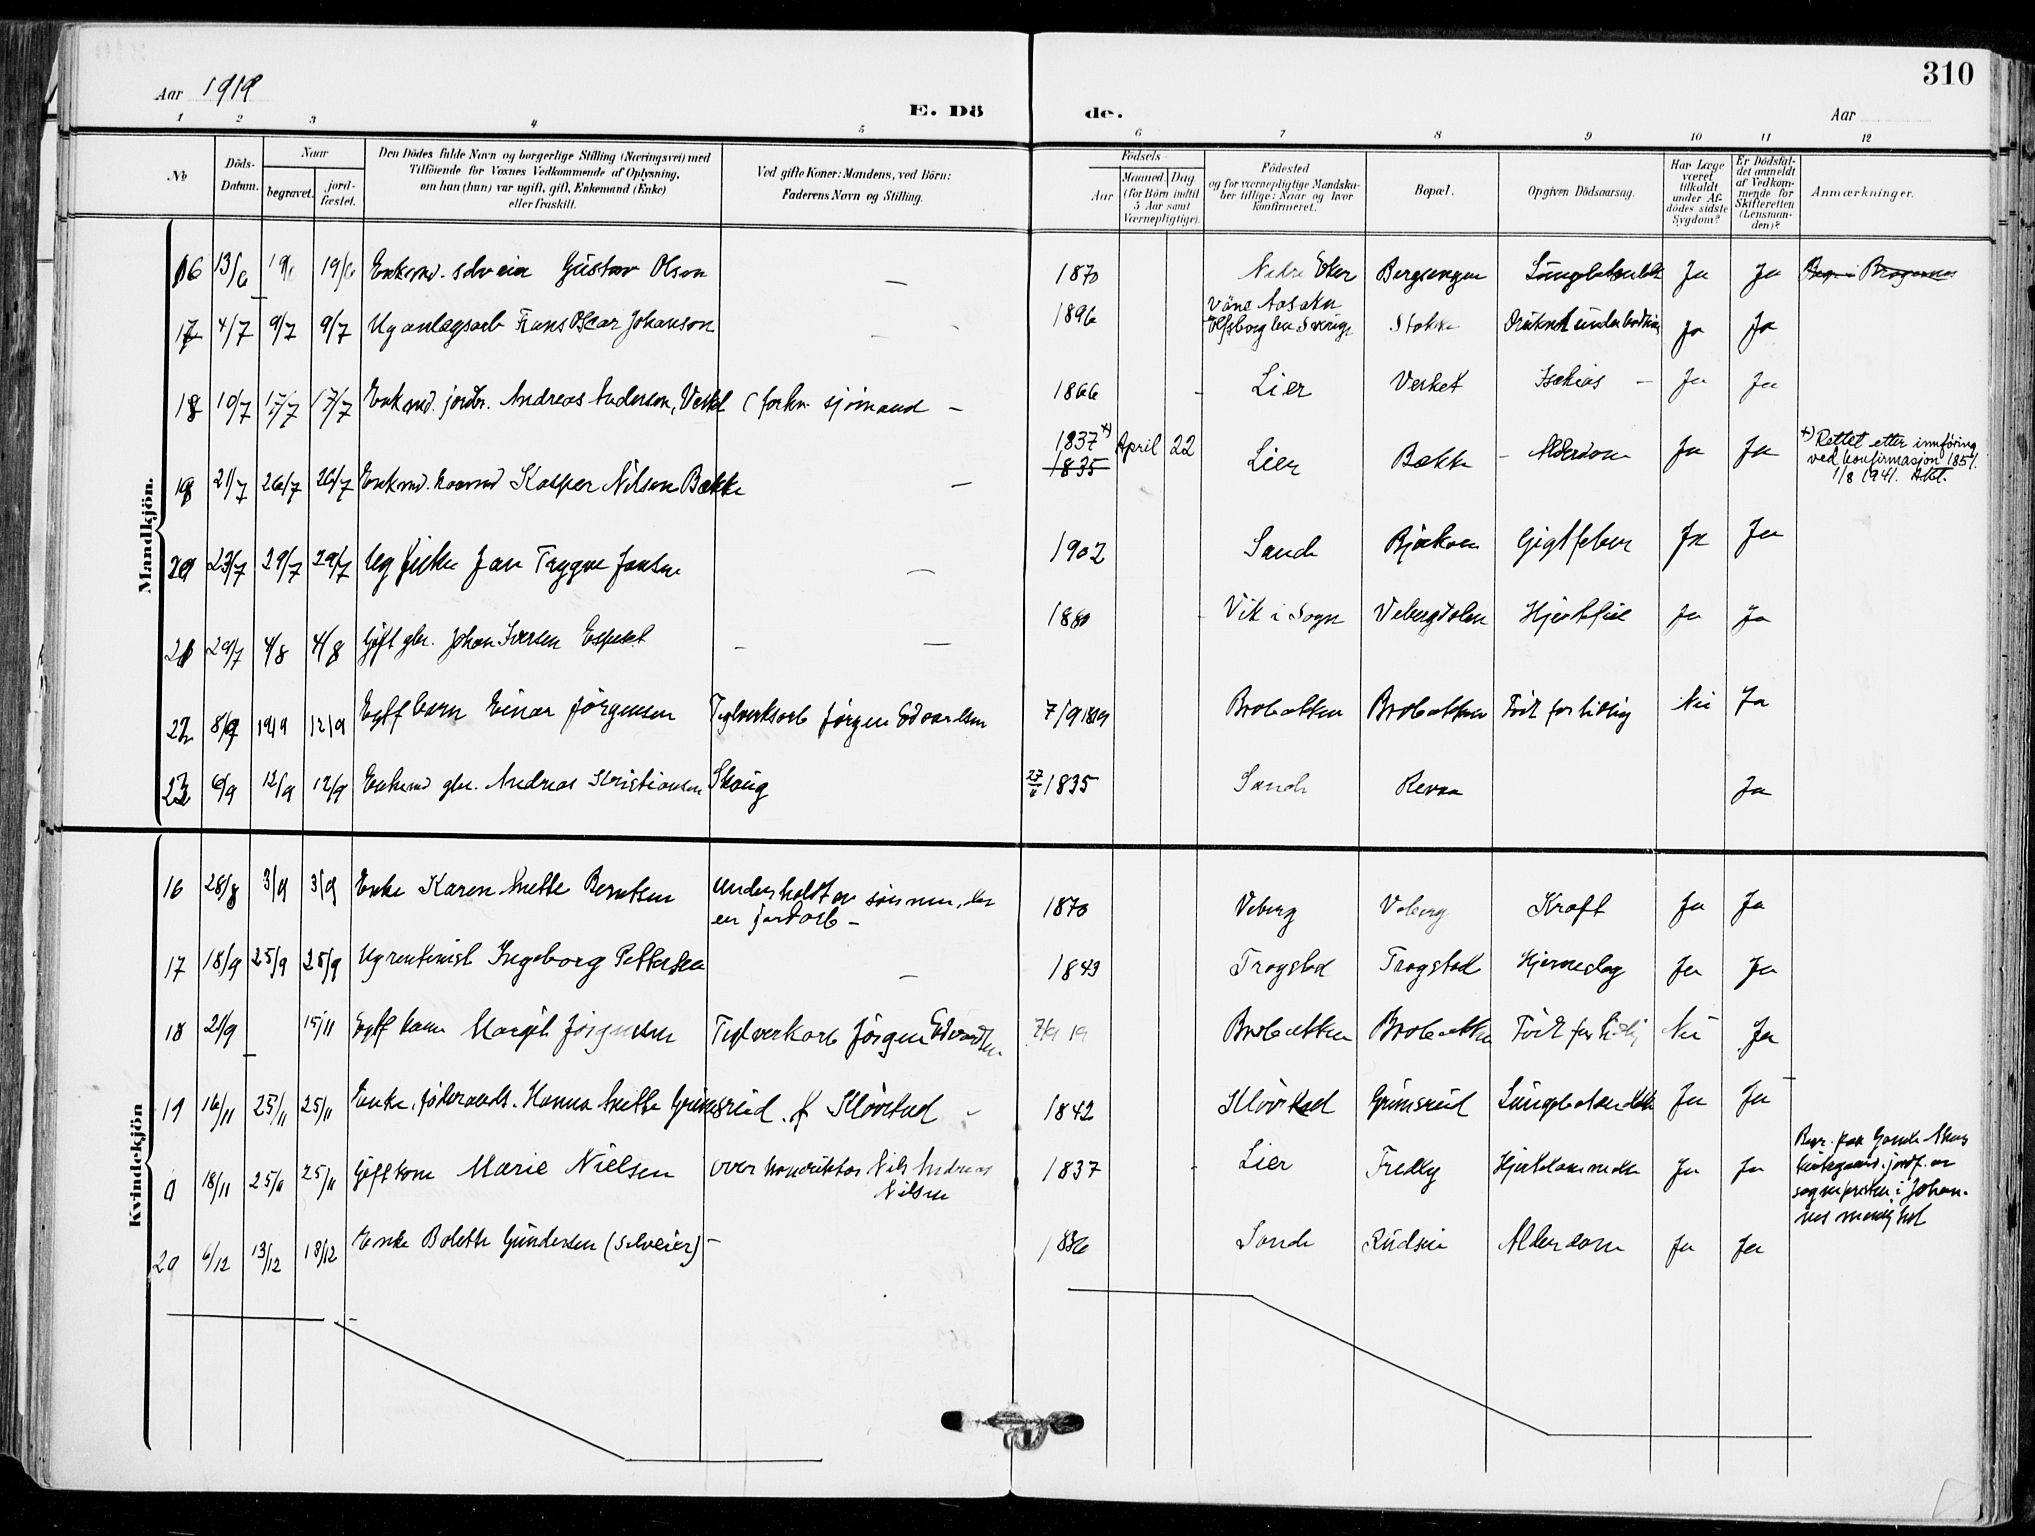 310
Aar 1919
E. Dö
de.
Aar
1 2 3 4 5 6 7 8 9 10 11 12
No
Döds-Datum.
Naar
begravet.
jord-fæstet.
Den Dödes fulde Navn og borgerlige Stilling (Næringsvei) med
Tilföiende for Voxnes Vedkommende af Oplysning,
om han (hun) var ugift, gift, Enkemand (Enke)
eller fraskilt.
Ved gifte Koner: Mandens, ved Börn:
Faderens Navn og Stilling.
Födsels-
Aar
Maaned. Dag
(for Börn indtil
5 Aar samt
Værnepligtige).
Födested
og for værnepligtige Mandska-
ber tillige: Naar og hvor
konfirmeret.
Bopæl.
Opgiven Dödsaarsag.
Har Læge
været
tilkaldt
under Af-
dödes sidste
Sygdom?
Er Dödsfal-
det anmeldt
af Vedkom-
mende for
Skifteretten
(Lensman-
den)?
Anmærkninger.
Mandkjön.
16 13/6 19/6 19/6 Enkemd. selveier Gustav Olson — 1870 Nedre Eker Bergsengen Ja Ja
17 4/7 9/7 9/7 Ug anlægsarb Frans Oscar Johanson 1896 Stokke Druknet under badning Ja Ja
18 10/7 17/7 17/7 Enkemd. jordbr. Andreas Anderson, Verket (forhv. sjömand — 1866 Lier Verket Ischias — Ja Ja
19 21/7 26/7 26/7 Enkemd. Kasper Nilsen Bække — 1837 x) 1835 April 22 Lier Bække Alderdom Ja Ja
x) Rettet etter innföring
ved konfirmasjon 1851.
1/8 1941.
20 23/7 29/7 29/7 Ug Jan Trygve Jansen — 1902 Sande Gigtfeber Ja Ja
21 29/7 4/8 4/8 Gift gbr. Johan Iversen — 1880 Vik i Sogn Hjertefeil Ja Ja
22 8/9 12/9 12/9 Egtf barn Einar Jörgensen Teglverksarb Jörgen Edvardsen 7/9 1919 Brobakken Brobakken Födt for tidlig Nei Ja
23 6/9 12/9 12/9 Enkemd gbr. Andreas Kristiansen Skoug 27/11 1835 Sande Revaa Ja
Kvindekjön
16 28/8 3/9 3/9 Enke Karen Anette Berntsen underholdt av sönnen, der
er jordarb — 1870 Veberg Veberg Kræft Ja Ja
17 18/9 25/9 25/9 Ug rentenist Ingeborg Pettersen — 1843 Trogstad Trogstad Hjerneslag Ja Ja
18 21/9 15/11 Egtf barn Margit Jörgensen Teglverkarb Jörgen Edvardsen 7/9 19 Brobakken Brobakken Födt for tidlig Nei Ja
19 16/11 25/11 25/11 Enke, föderaads. Hanna Anette Grimsrud. f Klövstad 1842 Klövstad Grimsrud Ja Ja
0 18/11 25/11 25/11 Gift kone Marie Nielsen overkonduktör Nils Andreas
Nilsen 1837 Lier Ja Ja
sognepresten i Johan-
nes menighet
20 6/12 13/12 13/12 Enke Bolette Gundersen (selveier) — 1836 Sande Alderdom Ja Ja